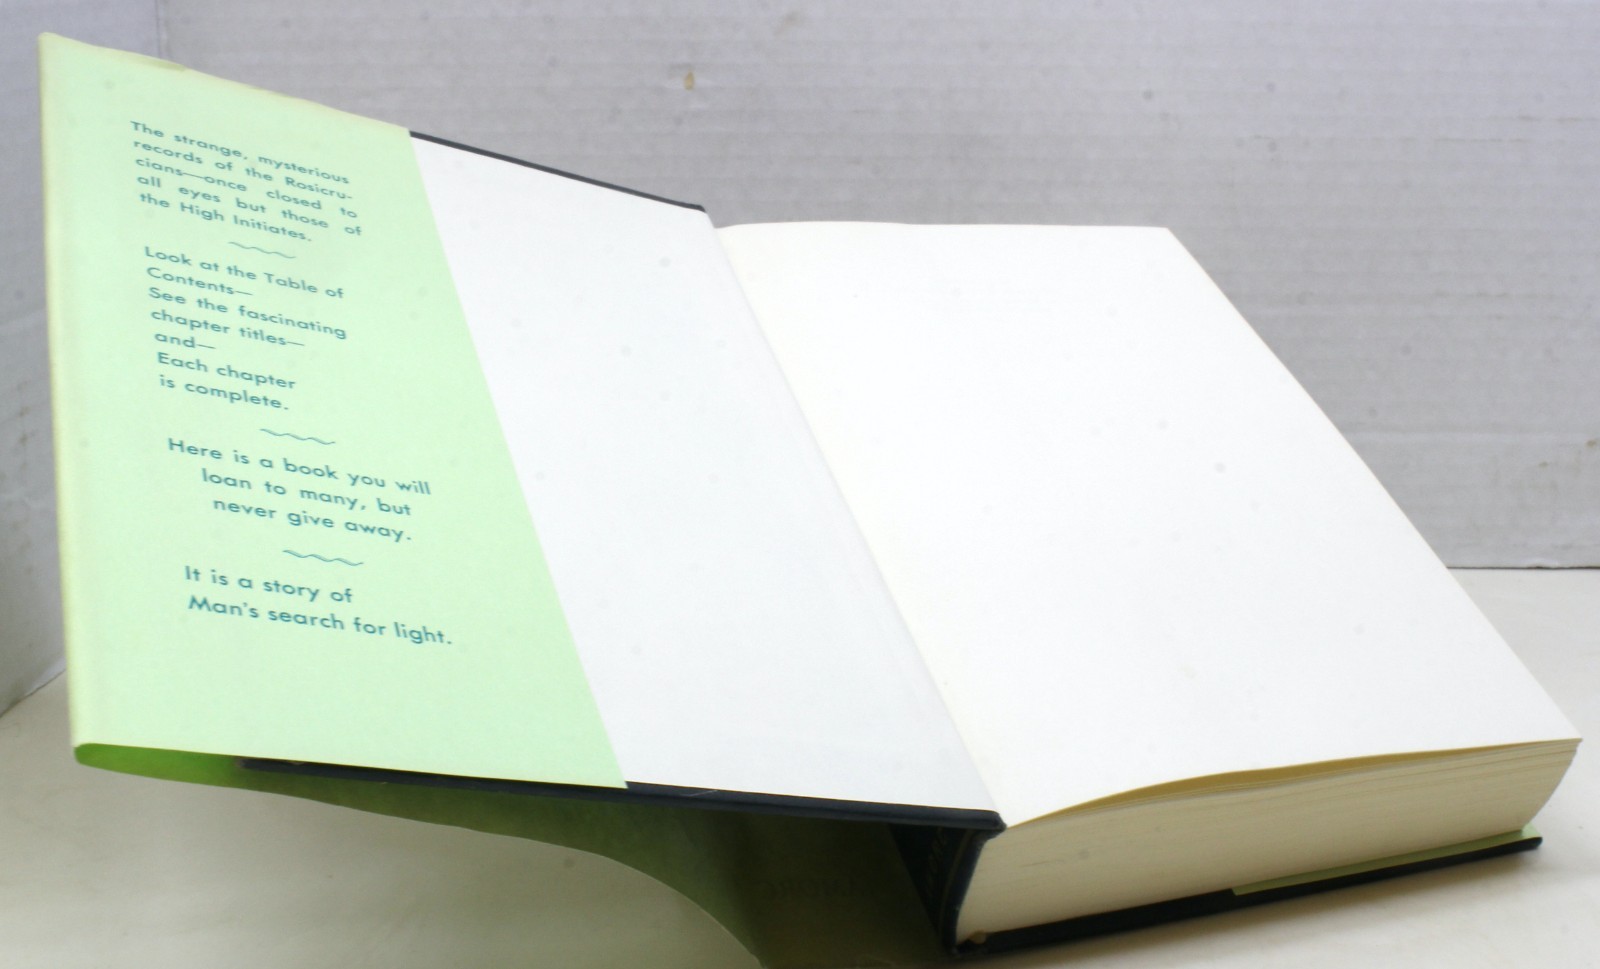 The strange, mysterious
records of the Rosicru-
cians—once closed to
all eyes but those of
the High Initiates.
Look at the Table of
Contents—
See the fascinating
chapter titles—
and—
Each chapter
is complete.
Here is a book you will
loan to many, but
never give away.
It is a story of
Man's search for light.